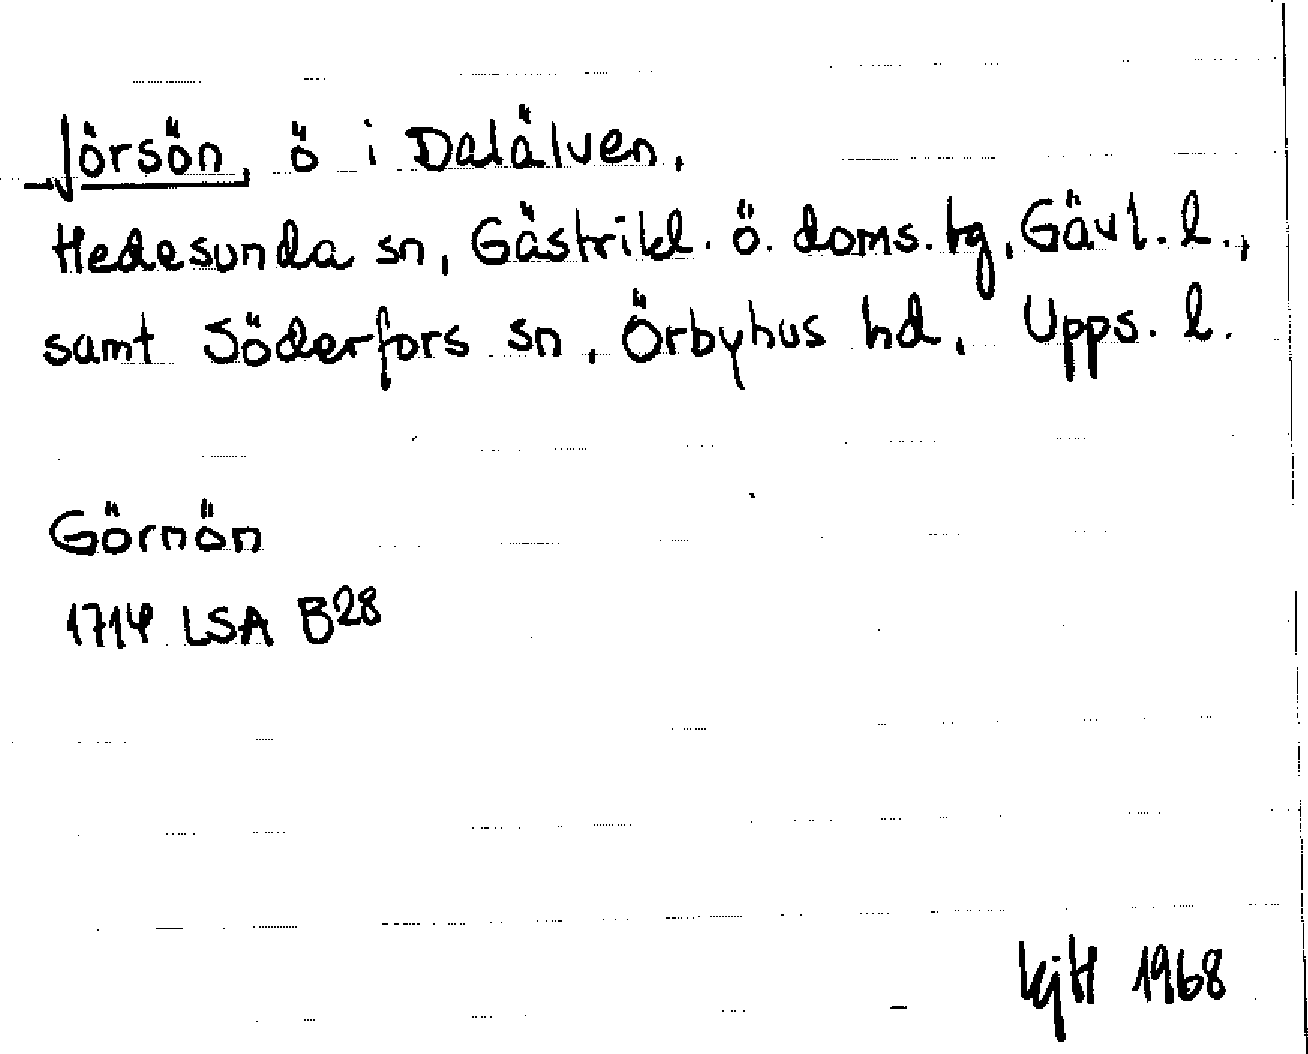 Jörsön, ö i Dalälven,
Hedesunda sn, Gästrikl. ö. doms. hg, Gävl. l.,
samt Söderfors sn, Örbyhus hd, Upps. l.
Görnön
1714 LSA B28
KjH 1968